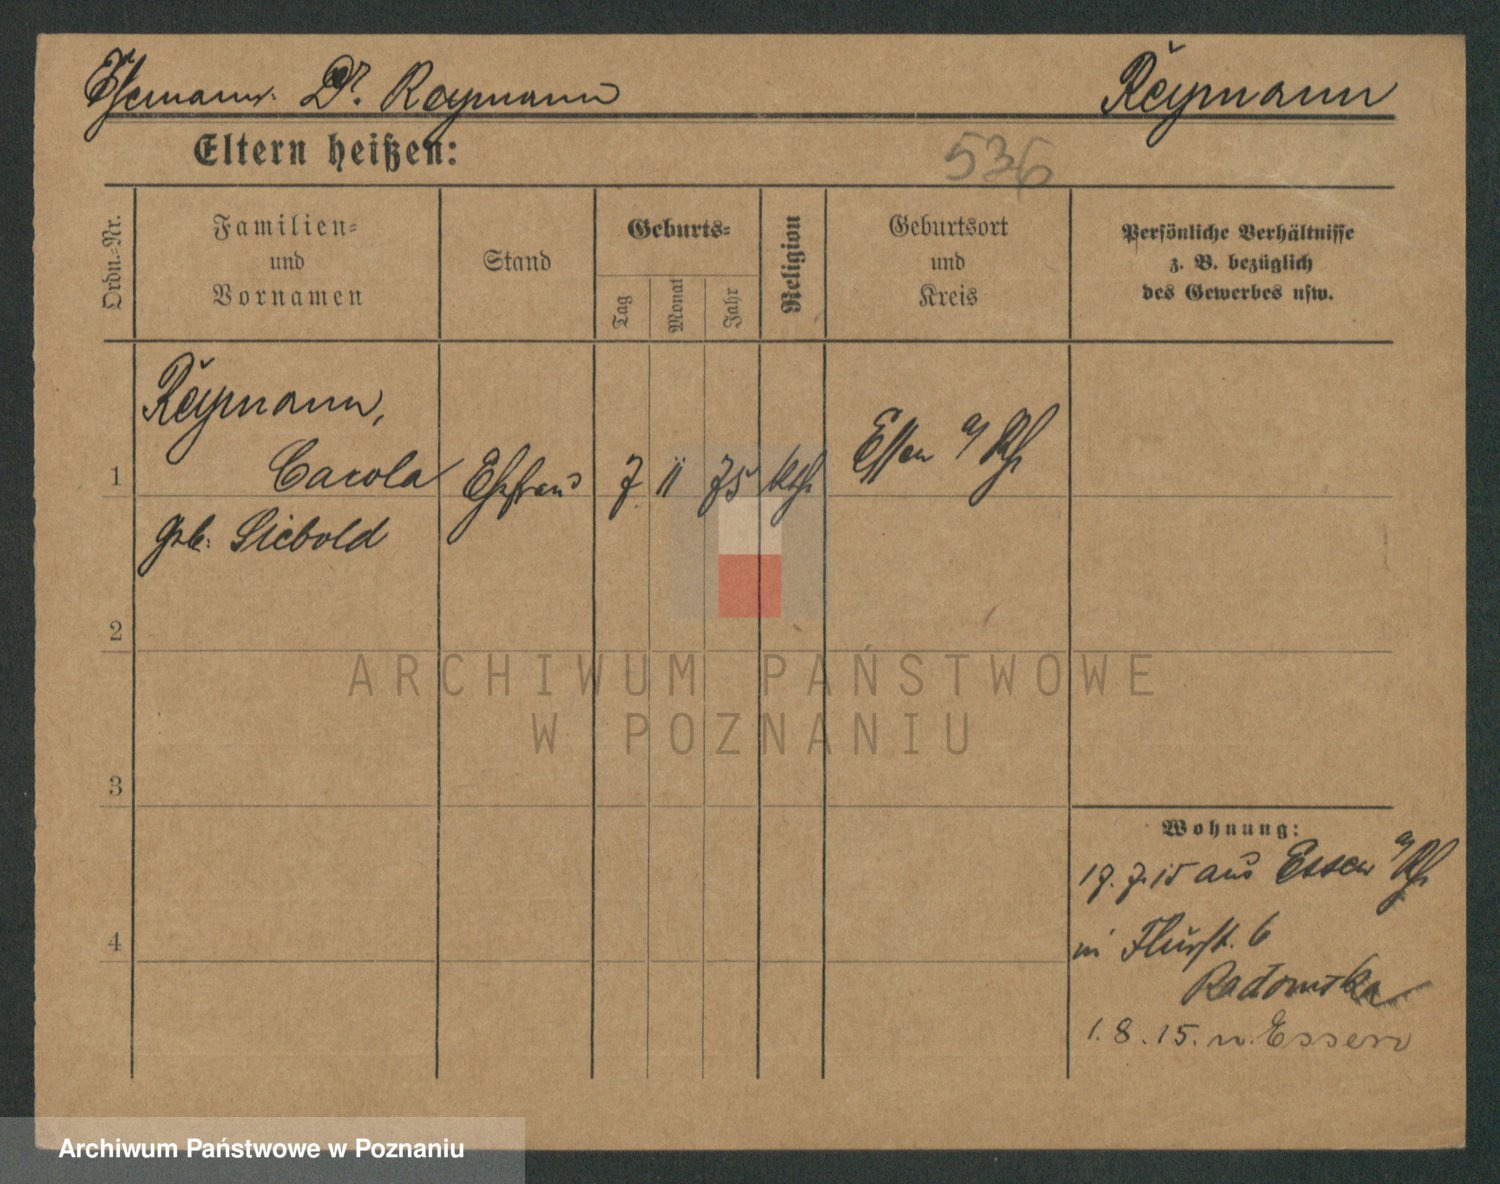 Ehemann: Dr. Reymann
Reymann
Eltern heißen:
536
Ordn.-Nr.
Familien-
und
Vornamen
Stand
Geburts-
Tag
Monat
Jahr
Religion
Geburtsort
und
Kreis
Persönliche Verhältnisse
z. B. bezüglich
des Gewerbes usw.
Reymann,
1 Carola Ehefrau 7 11 75 kth Essen a/Rh
geb. Siebold
2
ARCHIWUM PAŃSTWOWE
W POZNANIU
3
Wohnung:
19.7.15 aus Essen a/Rh
4
in Flurstr. 6
Radomska
1.8.15. n. Essen
Archiwum Państwowe w Poznaniu